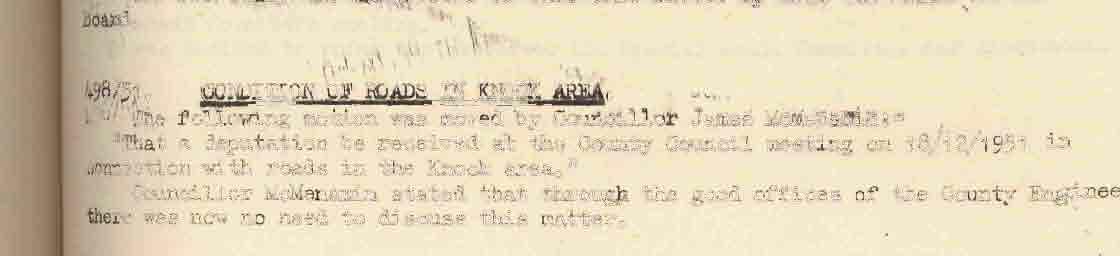 Board.
498/51. CONDITION OF ROADS IN KNOCK AREA.
The following motion was moved by Councillor James McManamin:-
"That a deputation be received at the County Council meeting on 18/12/1951 in
connection with roads in the Knock area."
Councillor McManamin stated that through the good offices of the County Enginee
there was now no need to discuss this matter.